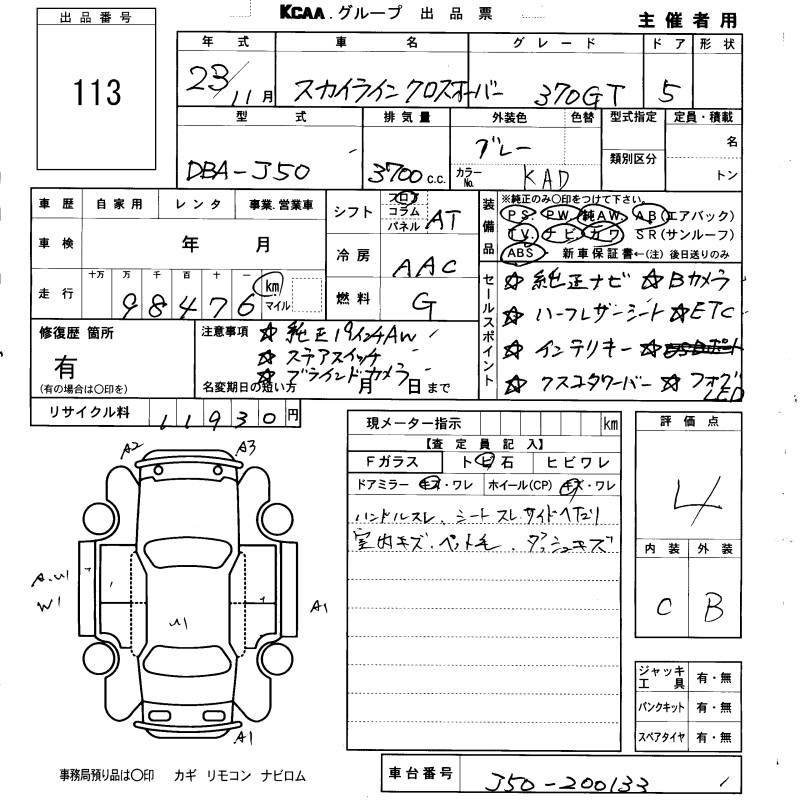 出品番号
113
KCAA.グループ 出品票
主催者用
年式 車名 グレード ドア 形状
23/11月 スカイラインクロスオーバー 370GT 5
型式 排気量 外装色 色替 型式指定 定員・積載
類別区分
名
トン
DBA-J50 3700c.c. グレー
カラーNo. KAD
車歴 自家用 レンタ 事業.営業車
車検 年 月
走行 十万 万 千 百 十 一
98476 km マイル
シフト フロア コラム パネル AT
冷房 AAC
燃料 G
装備品
※純正のみ○印をつけて下さい。
PS. PW. 純AW. AB(エアバック)
TV. ナビ. カワ SR(サンルーフ)
ABS・新車保証書←(注) 後日送りのみ
セールスポイント
☆純正ナビ ☆Bカメラ
☆ハーフレザーシート ☆ETC
☆インテリキー ☆USBポート
☆ ☆フォグLED
修復歴 箇所
有
(有の場合は○印を)
注意事項 ☆純正19インチAW
☆ステアスイッチ
☆ブラインドカメラ
名変期日の短い方 月 日まで
リサイクル料 11930円
現メーター指示 km
【査定員記入】
Fガラス トビ石 ヒビワレ
ドアミラー キズ・ワレ ホイール(CP) キズ・ワレ
ハンドルスレ、シートスレ、サイドヘタリ
室内キズ・ペット毛、ダッシュキズ
評価点
4
内装 外装
C B
A2 A3
A.U1
W1
U1
A1
A1
ジャッキ工具 有・無
パンクキット 有・無
スペアタイヤ 有・無
事務局預り品は○印 カギ リモコン ナビロム
車台番号 J50-200133